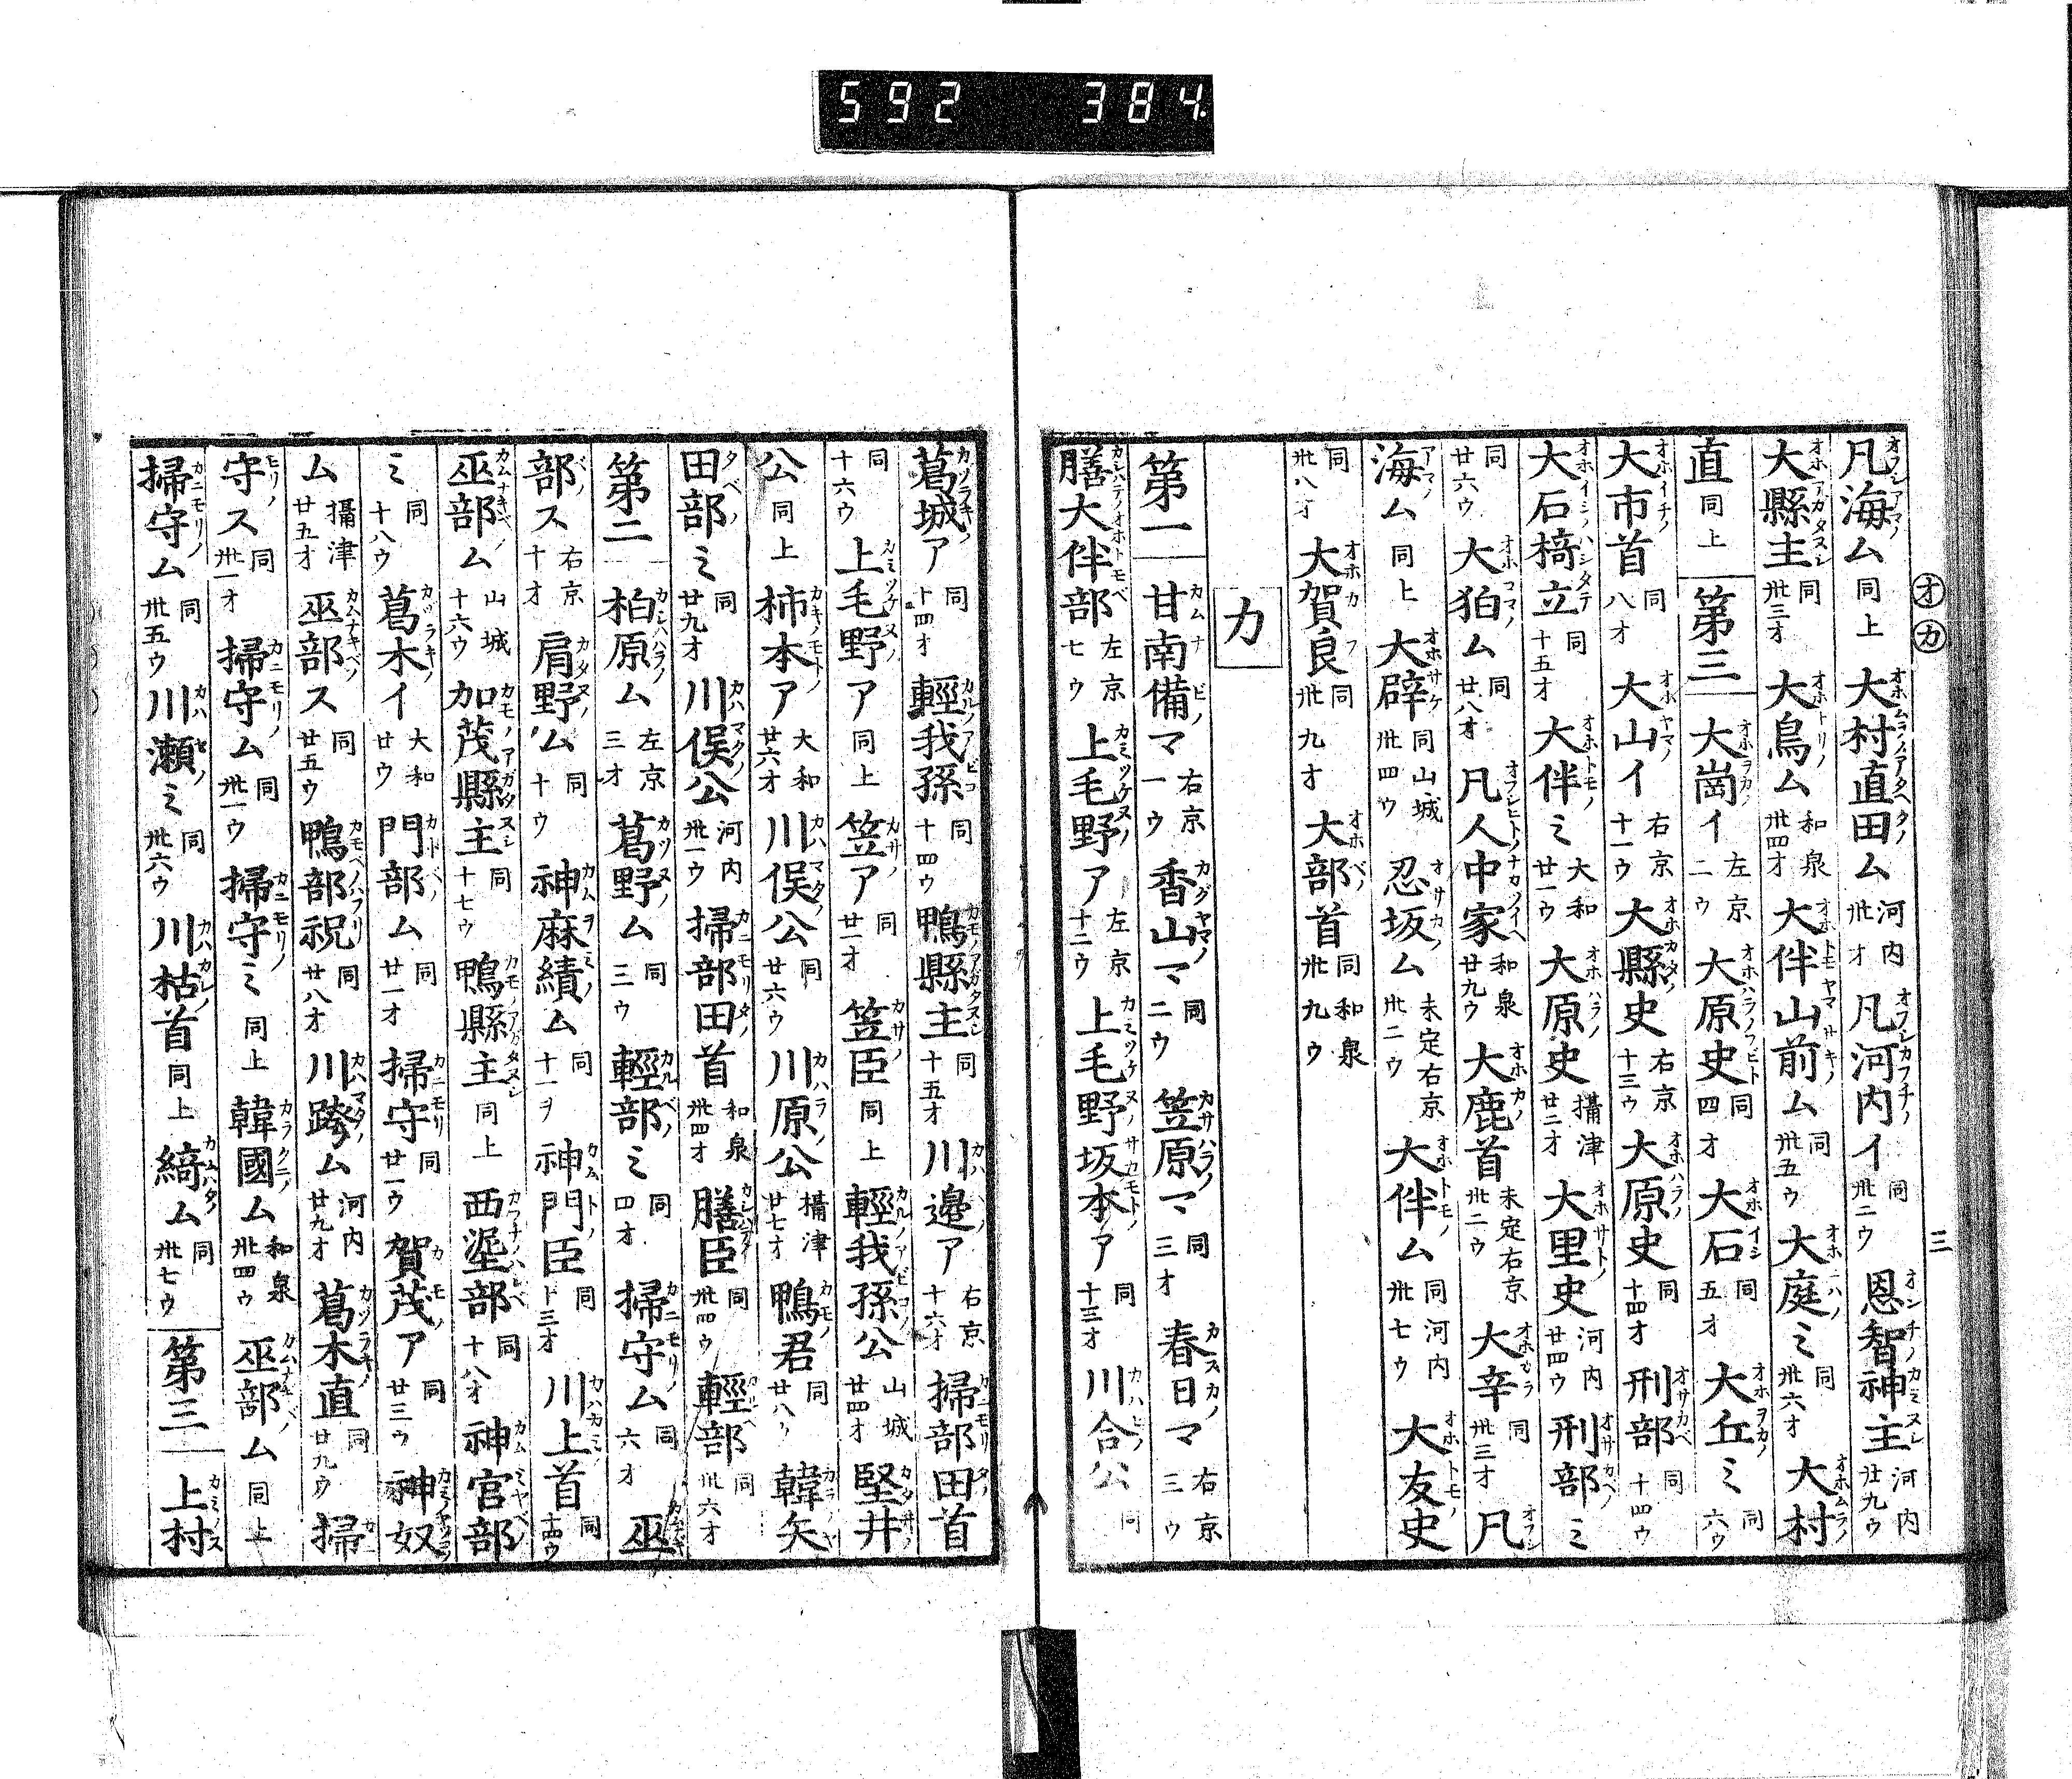 592 384.
オカ
三
凡海ム同上大村直田ム河内卅オ凡河内イ同卅二ウ恩智神主河内廿九ウ
大縣主同卅三オ大鳥ム和泉卅四オ大伴山前ム同卅五ウ大庭ミ同卅六オ大村
直同上第三大崗イ左京二ウ大原史同四オ大石同五オ大丘ミ同六ウ
大市首同八オ大山イ右京十一ウ大縣史右京十三ウ大原史同十四オ刑部同十四ウ
大石椅立同十五オ大伴ミ大和廿一ウ大原史攝津廿二オ大里史河内廿四ウ刑部ミ
同廿六ウ大狛ム同廿八オ凡人中家和泉廿九ウ大鹿首未定右京卅二ウ大辛同卅三オ凡
海ム同上大辟同山城卅四ウ忍坂ム未定右京卅二ウ大伴ム同河内卅七ウ大友史
同卅八オ大賀良同卅九オ大部首同和泉卅九ウ
カ
第一甘南備マ右京一ウ香山マ同二ウ笠原マ同三オ春日マ右京三ウ
膳大伴部左京七ウ上毛野ア左京十二ウ上毛野坂本ア同十三オ川合公同
葛城ア同十四オ輕我孫同十四ウ鴨縣主同十五オ川邉ア右京十六オ掃部田首
同十六ウ上毛野ア同上笠ア同廿一オ笠臣同上輕我孫公山城廿四オ堅井
公同上柿本ア大和廿六オ川俣公同廿六ウ川原公攝津廿七オ鴨君同廿八ウ韓矢
田部ミ同廿九オ川俣公河内卅一ウ掃部田首和泉卅四オ膳臣同卅四ウ輕部同卅六オ
第二柏原ム左京三オ葛野ム同三ウ輕部ミ同四オ掃守ム同六オ巫
部ス右京十オ肩野ム同十ウ神麻績ム同十一ヲ神門臣同十三オ川上首同十四ウ
巫部ム山城十六ウ加茂縣主同十七ウ鴨縣主同上西埿部同十八オ神官部
ミ同十八ウ葛木イ大和廿ウ門部ム同廿一オ掃守同廿一ウ賀茂ア同廿三ウ神奴
ム攝津廿五オ巫部ス同廿五ウ鴨部祝同廿八オ川跨ム河内廿九オ葛木直同廿九ウ掃
守ス同卅一オ掃守ム同卅一ウ掃守ミ同上韓國ム和泉卅四ウ巫部ム同上
掃守ム同卅五ウ川瀬ミ同卅六ウ川枯首同上綺ム同卅七ウ第三上村